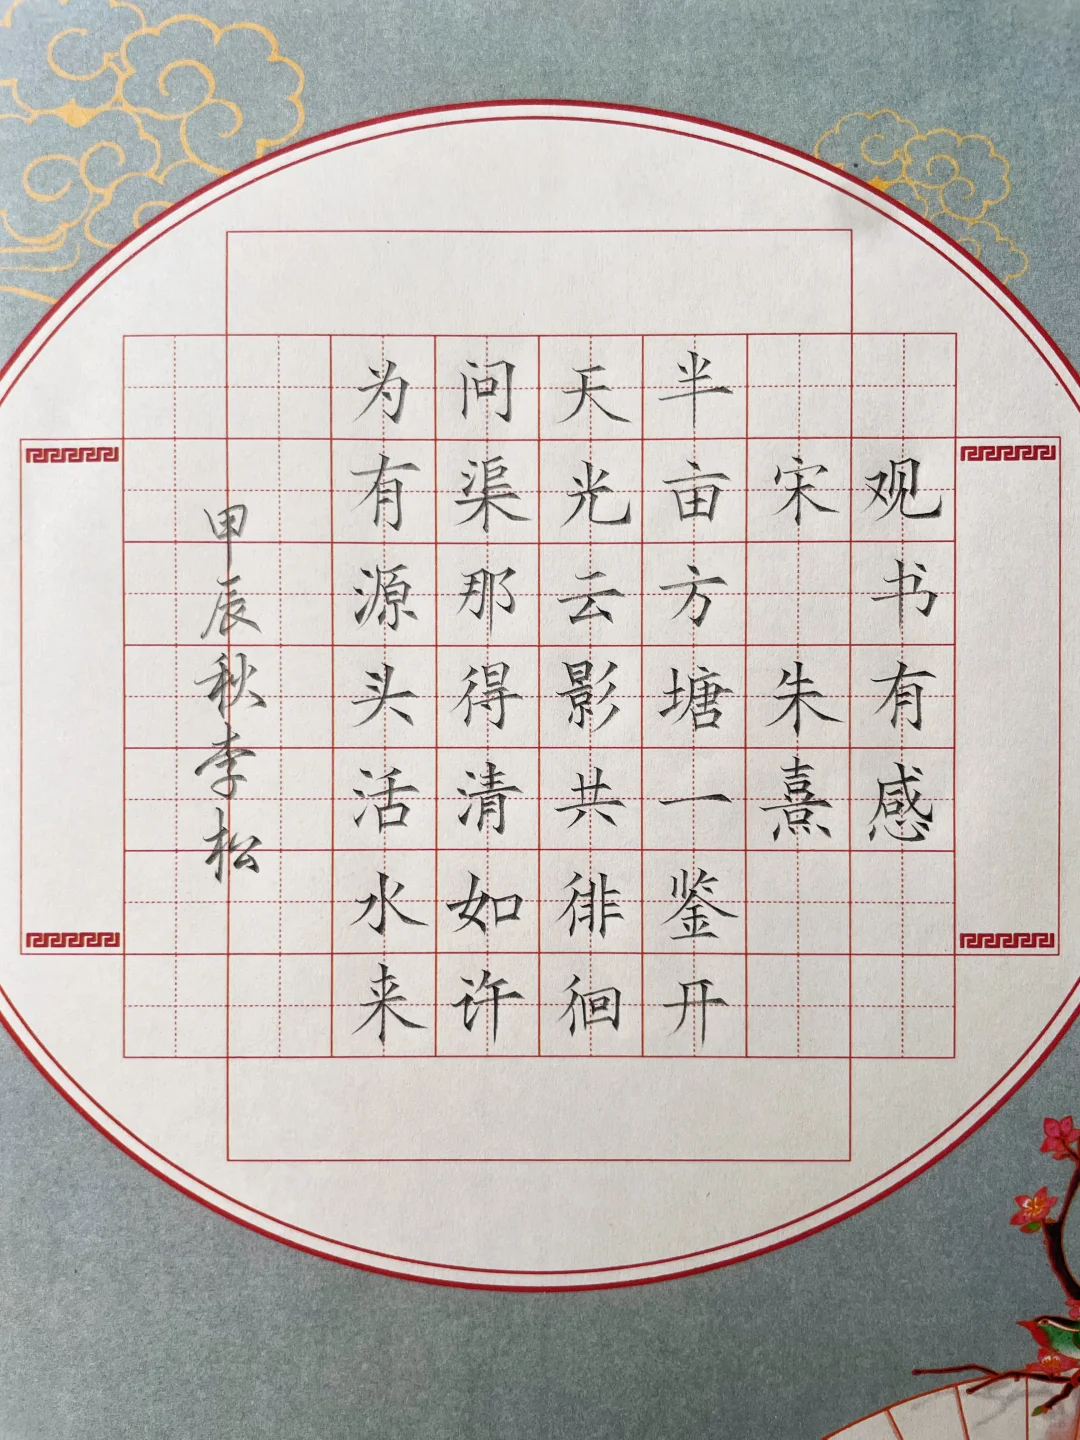 观书有感
宋 朱熹
半亩方塘一鉴开
天光云影共徘徊
问渠那得清如许
为有源头活水来
甲辰秋李松